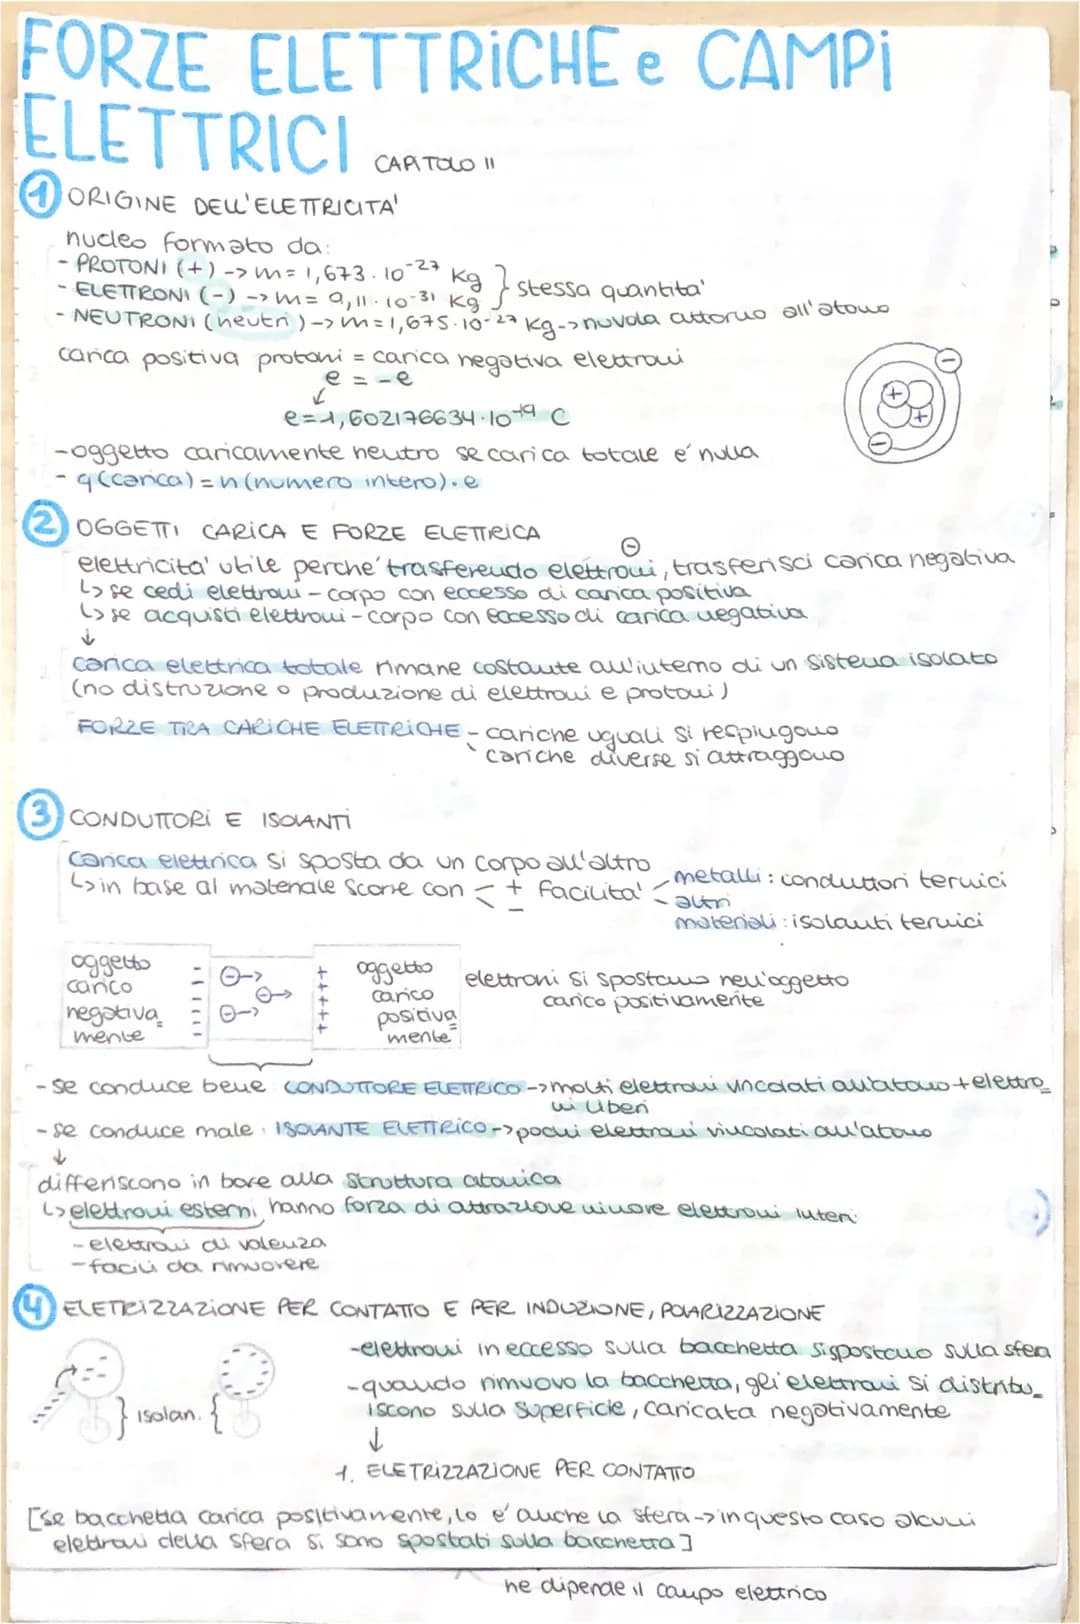 FORZE ELETTRiCHE e CAMPi
ELETTRICI CAPITOLO 11
1 ORIGINE DELL'ELETTRICITA'
nucleo formato da:
- PROTONI (+) -> m = 1,673 · 10⁻²⁷ kg } stessa quantita'
- ELETTRONI (-) -> m = 9,11 · 10⁻³¹ kg
- NEUTRONI (neutri) -> m = 1,675 · 10⁻²⁷ kg -> nuvola attorno all'atomo
carica positiva protoni = carica negativa elettroni
e = -e
↓
e = 1,602176634 · 10⁻¹⁹ C
- oggetto caricamente neutro se carica totale e' nulla
- q (carica) = n (numero intero) · e
2 OGGETTI CARICA E FORZE ELETTRICA
elettricita' utile perche' trasferendo elettroni, trasferisci carica negativa
↳ se cedi elettroni - corpo con eccesso di carica positiva
↳ se acquisti elettroni - corpo con eccesso di carica negativa
↓
carica elettrica totale rimane costante all'interno di un sistema isolato
(no distruzione o produzione di elettroni e protoni)
FORZE TRA CARICHE ELETTRICHE - cariche uguali si respingono
cariche diverse si attraggono
3 CONDUTTORI E ISOLANTI
Carica elettrica si sposta da un corpo all'altro
↳ in base al materiale scorre con < + - facilita' - metalli: conduttori termici
- altri
materiali: isolanti termici
oggetto
carico
negativa_
mente
oggetto
carico
positiva_
mente
elettroni si spostano nell'oggetto
carico positivamente
- se conduce bene CONDUTTORE ELETTRICO -> molti elettroni vincolati all'atomo + elettro_
ni liberi
- se conduce male: ISOLANTE ELETTRICO -> pochi elettroni vincolati all'atomo
↓
differiscono in base alla struttura atomica
↳ elettroni esterni hanno forza di attrazione minore elettroni interni
- elettroni di valenza
- facili da rimuovere
4 ELETRIZZAZIONE PER CONTATTO E PER INDUZIONE, POLARIZZAZIONE
- elettroni in eccesso sulla bacchetta si spostano sulla sfera
- quando rimuovo la bacchetta, gli elettroni si distribu_
iscono sulla superficie, caricata negativamente
} isolan. {
↓
1. ELETRIZZAZIONE PER CONTATTO
[se bacchetta carica positivamente, lo e' anche la sfera -> in questo caso alcuni
elettroni della sfera si sono spostati sulla bacchetta]
ne dipende il campo elettrico